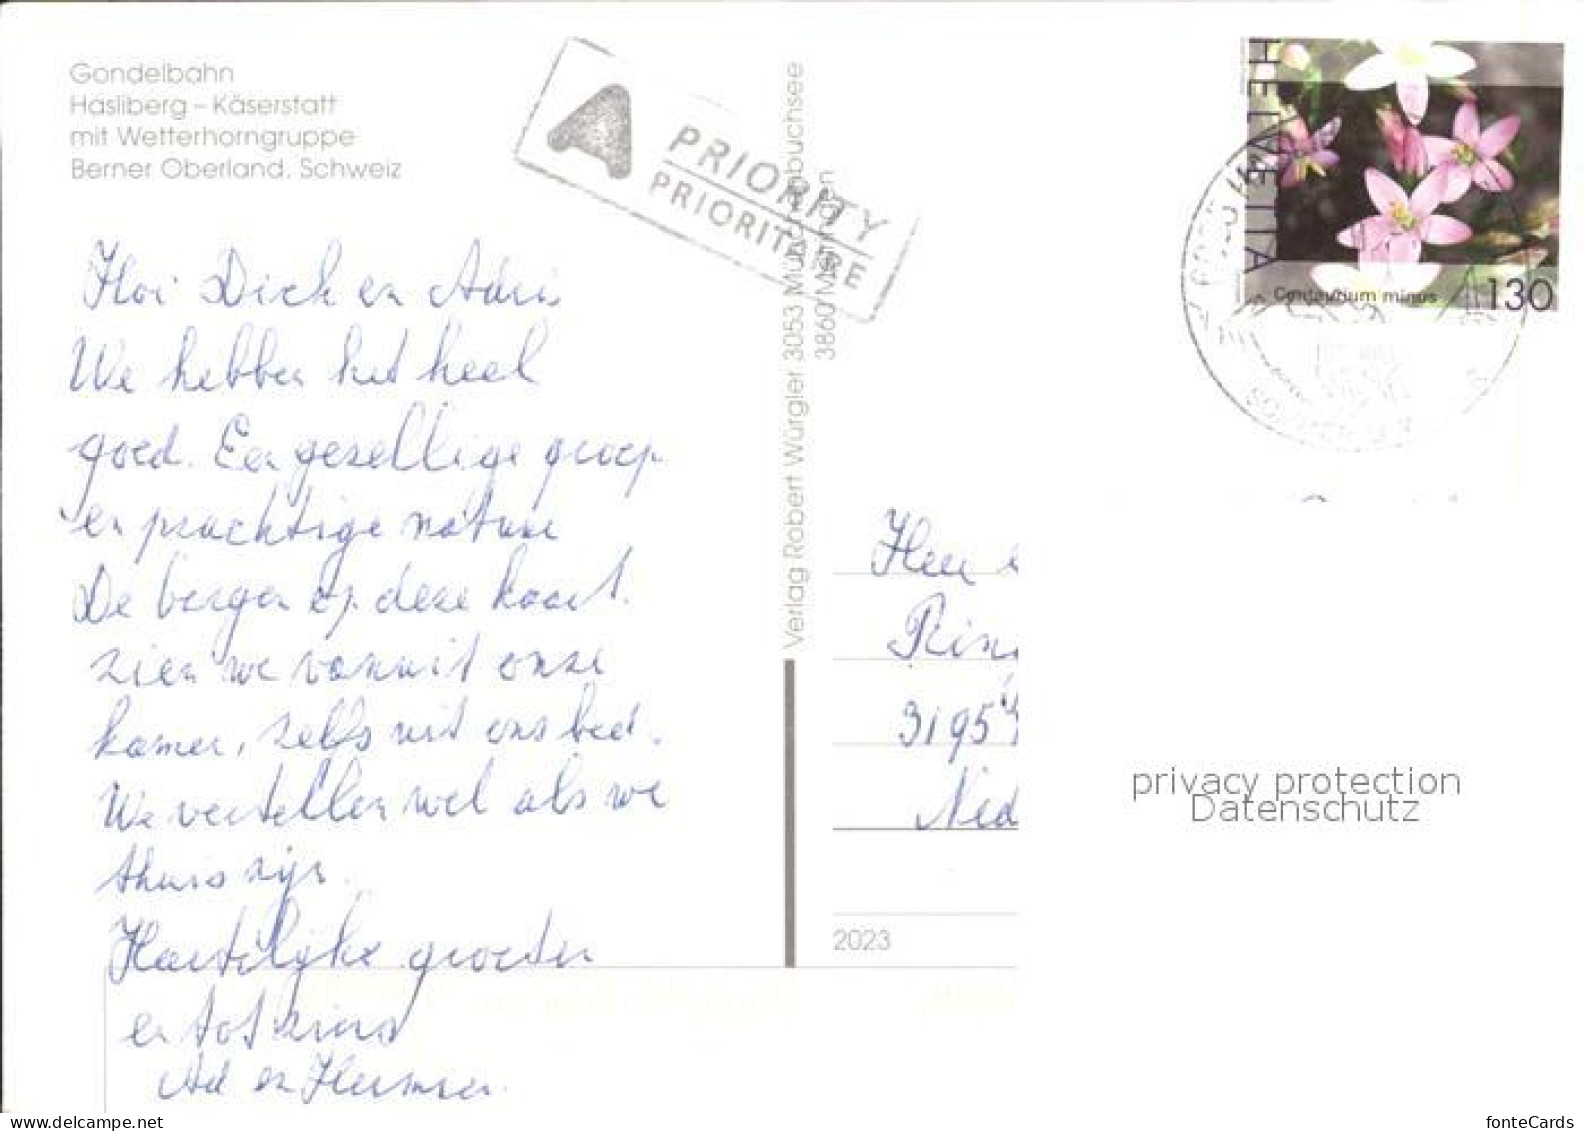 Gondelbahn
Hasliberg – Käserstatt
mit Wetterhorngruppe
Berner Oberland, Schweiz
A PRIORITY
PRIORITAIRE
HELVETIA
Centaurium minus
130
Hoi Dick en Adri
We hebben het heel
goed. Een gezellige groep
en prachtige natuur
De bergen op deze kaart
zien we vanuit onze
kamer, zelfs uit ons bed.
We vertellen wel als we
thuis zijn.
Hartelijke groeten
en tot ziens
Ad en
Verlag Robert Würgler 3053 Münchenbuchsee
3860 Meiringen
Heer
3195
Ned
2023
privacy protection
Datenschutz
www.delcampe.net
fonteCards